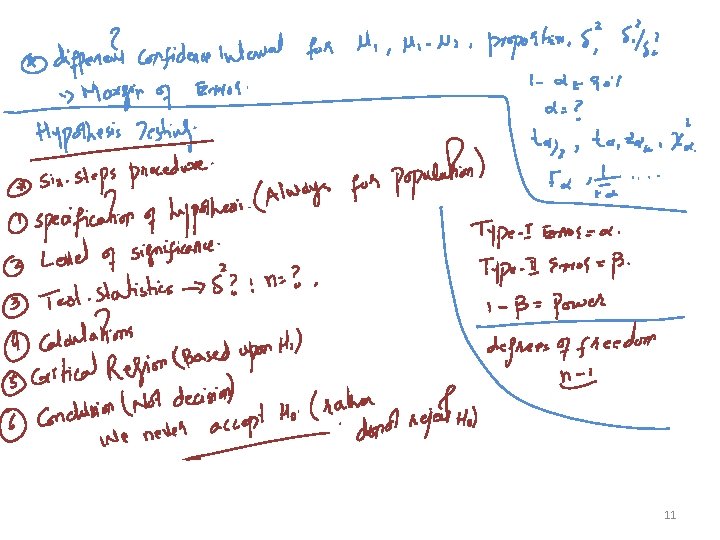 ?
* different confidence interval for μ₁, μ₁-μ₂, proportion, δ², δ₁²/δ₂²?
→ Margin of Error.
Hypothesis Testing.
* Six-steps procedure.
① Specification of hypothesis. (Always for population)
② Level of significance.
③ Test-statistics → δ²? ; n=?.
④ Calculations
⑤ Critical Region (Based upon H₁)
⑥ Conclusion (Not decision)
We never accept H₀. (rather do not reject H₀)
α=?
Type-I Error = α.
Type-II Error = β.
1-β = Power
degrees of freedom
n-1
11